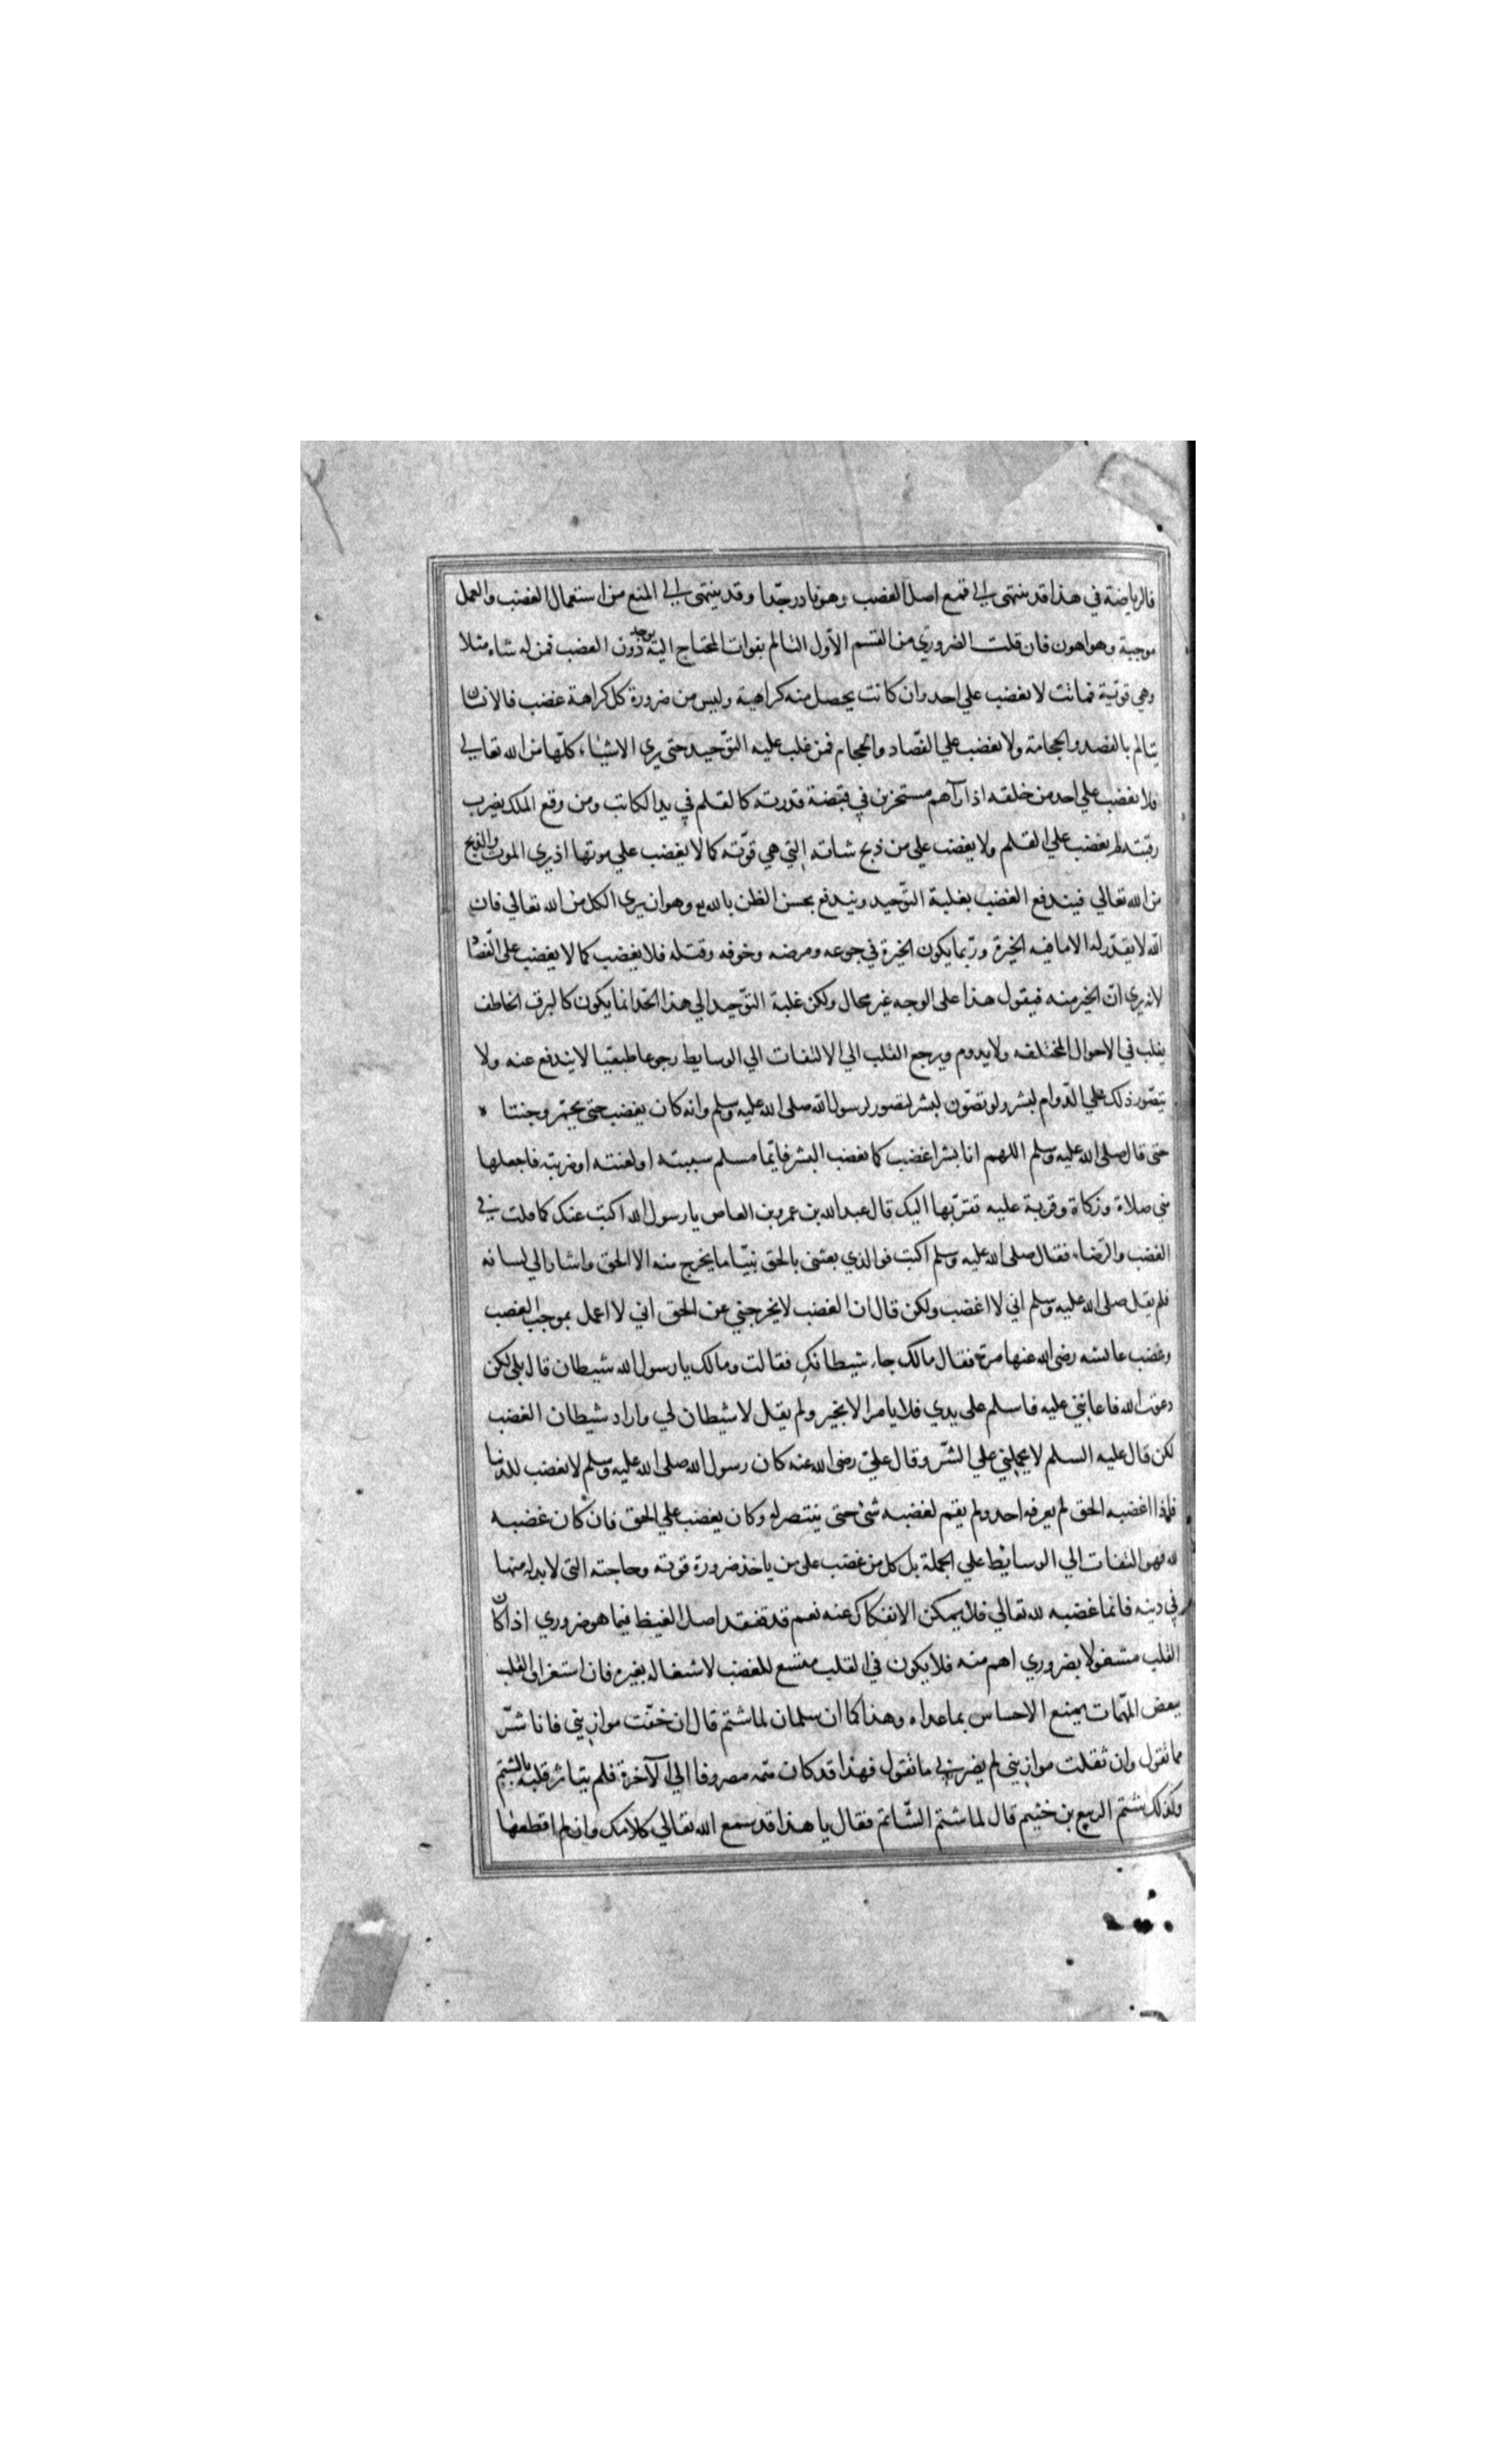 فالرياضة في هذا قد ينتهى الي قمع اصل الغضب وهو نادر جدّا وقد ينتهى الي المنع من استعمال الغضب والعمل
موجبة وهو اهون فان قلت الضروري من القسم الاوّل التالم بفوات المحتاج اليه دون الغضب فمن له شاه مثلا
وهي قوتية فماتت لا يغضب علي احد وان كانت يحصل منه كراهية وليس من ضرورة كل كراهة غضب فالانسان
يتالم بالفصد والحجامة ولا يغضب علي الفصّاد والحجام فمن غلب عليه التوّحيد حتى يري الاشياء كلّها من الله تعالي
فلا يغضب علي احد من خلقه اذا رآهم مسخرين في قبضة قدرته كالقلم في يد الكاتب ومن وقع الملك بضرب
رقبته لم يغضب علي القلم ولا يغضب علي من ذبح شاته التي هي قوّته كما لا يغضب علي موتها اذ يري الموت والذبح
من الله تعالي فيندفع الغضب بغلبة التوّحيد ويندفع بحسن الظن بالله وهو ان يري الكل من الله تعالي فان
الله لا يقدّر له الا ما فيه الخيرة وربّما يكون الخيرة في جوعه ومرضه وخوفه وقتله فلا يغضب كما لا يغضب على الفصّاد
لانه يري ان الخير منه فيقول هذا على الوجه غير محال ولكن غلبة التوّحيد الي هذا الحدّ انما يكون كالبرق الخاطف
يغلب في الاحوال المختلفه ولا يدوم ويرجع القلب الي الالتفات الي الوسايط رجوعا طبيعيا لا يندفع عنه ولا
يتصّور ذلك علي الدّوام لبشر ولو تصّور لبشر لتصور لرسول الله صلى الله عليه وسلم وانه كان يغضب حتى يحمّر وجنتا ه
حتى قال صلى الله عليه وسلم اللهم انا بشر اغضب كما يغضب البشر فايّما مسلم سببته او لعنته او ضربته فاجعلها
مني صلاة وزكاة وقربة عليه تقرّبها اليك قال عبد الله بن عمرو بن العاص يا رسول الله اكتب عنك كما قلت في
الغضب والرّضاء فقال صلى الله عليه وسلم اكتب فوالذي بعثني بالحق نبيّا ما يخرج منه الا الحق واشار الي لسانه
فلم يقل صلى الله عليه وسلم اني لا اغضب ولكن قال ان الغضب لا يخرجني عن الحق اني لا اعمل بموجب الغضب
وغضب عايشه رضى الله عنها مرة فقال مالك جاء شيطانكِ فقالت ومالك يا رسول الله شيطان قال بلى لكن
دعوت الله فاعانني عليه فاسلم على يدي فلا يامر الا بخير ولم يقل لا شيطان لي واراد شيطان الغضب
لكن قال عليه السلم لا يحملني علي الشّر وقال عليّ رضى الله عنه كان رسول الله صلى الله عليه وسلم لا يغضب للدنيا
فاذا اغضبه الحق لم يعرفه احد ولم يقم لغضبه شئ حتى ينتصر له وكان يغضب علي الحق فان كان غضبه
لله فهو التفات الي الوسائط علي الجملة بل كل من غضب على من ياخذ ضرورة قوته وحاجته التى لا بد له منها
في دينه فانما غضبه لله تعالي فلا يمكن الانفكاك عنه نعم قد تفقد اصل الغيظ فيما هو ضروري اذا كان
القلب مشغولا بضروري اهم منه فلا يكون في القلب متسع للغضب لاشغاله بغيره فان استغراق القلب
ببعض المهّمات يمنع الاحساس بما عداه وهذا كما ان سلمان لما شتم قال ان خفّت موازيني فانا شرّ
مما تقول وان ثقلت موازيني لم يضرني ما تقول فهذا قد كان همّه مصروفا الي الآخرة فلم يتاثر قلبه بالشتم
وكذلك شتم الربيع بن خثيم قال لما شتم الشّاتم فقال يا هذا قد سمع الله تعالي كلامك وان لم اقطعها